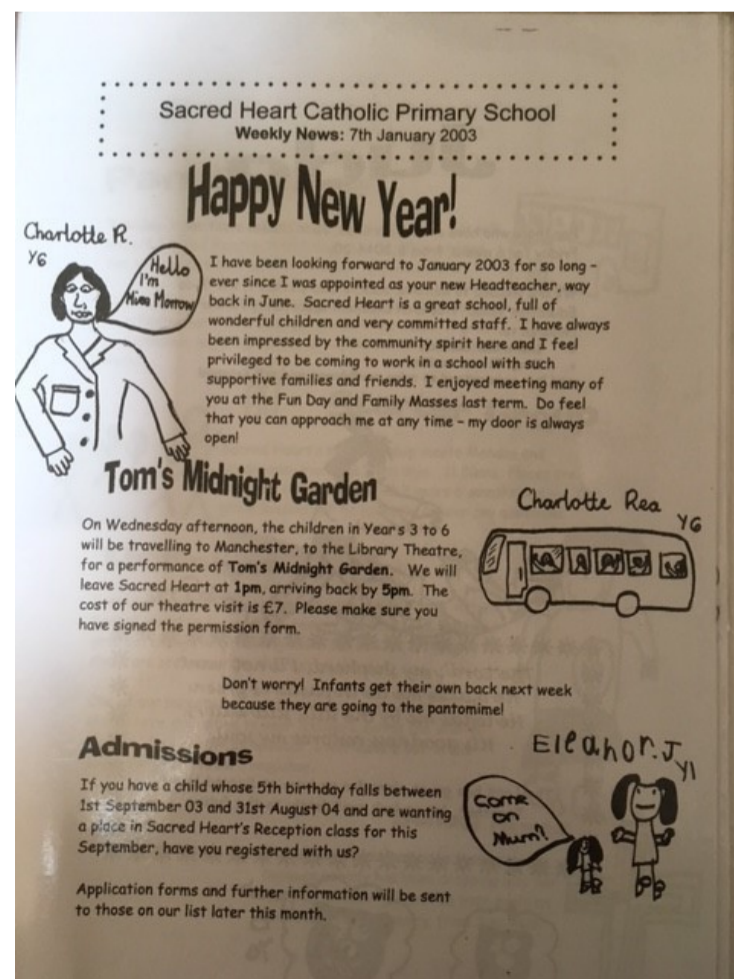 Sacred Heart Catholic Primary School
Weekly News: 7th January 2003
Happy New Year!
Charlotte R.
Y6
Hello
I'm
Miss Morrow
I have been looking forward to January 2003 for so long –
ever since I was appointed as your new Headteacher, way
back in June. Sacred Heart is a great school, full of
wonderful children and very committed staff. I have always
been impressed by the community spirit here and I feel
privileged to be coming to work in a school with such
supportive families and friends. I enjoyed meeting many of
you at the Fun Day and Family Masses last term. Do feel
that you can approach me at any time – my door is always
open!
Tom's Midnight Garden
On Wednesday afternoon, the children in Years 3 to 6
will be travelling to Manchester, to the Library Theatre,
for a performance of Tom's Midnight Garden. We will
leave Sacred Heart at 1pm, arriving back by 5pm. The
cost of our theatre visit is £7. Please make sure you
have signed the permission form.
Charlotte Rea
Y6
Don't worry! Infants get their own back next week
because they are going to the pantomime!
Admissions
If you have a child whose 5th birthday falls between
1st September 03 and 31st August 04 and are wanting
a place in Sacred Heart's Reception class for this
September, have you registered with us?
Application forms and further information will be sent
to those on our list later this month.
Eleanor.J
Y1
Come
on
Mum?